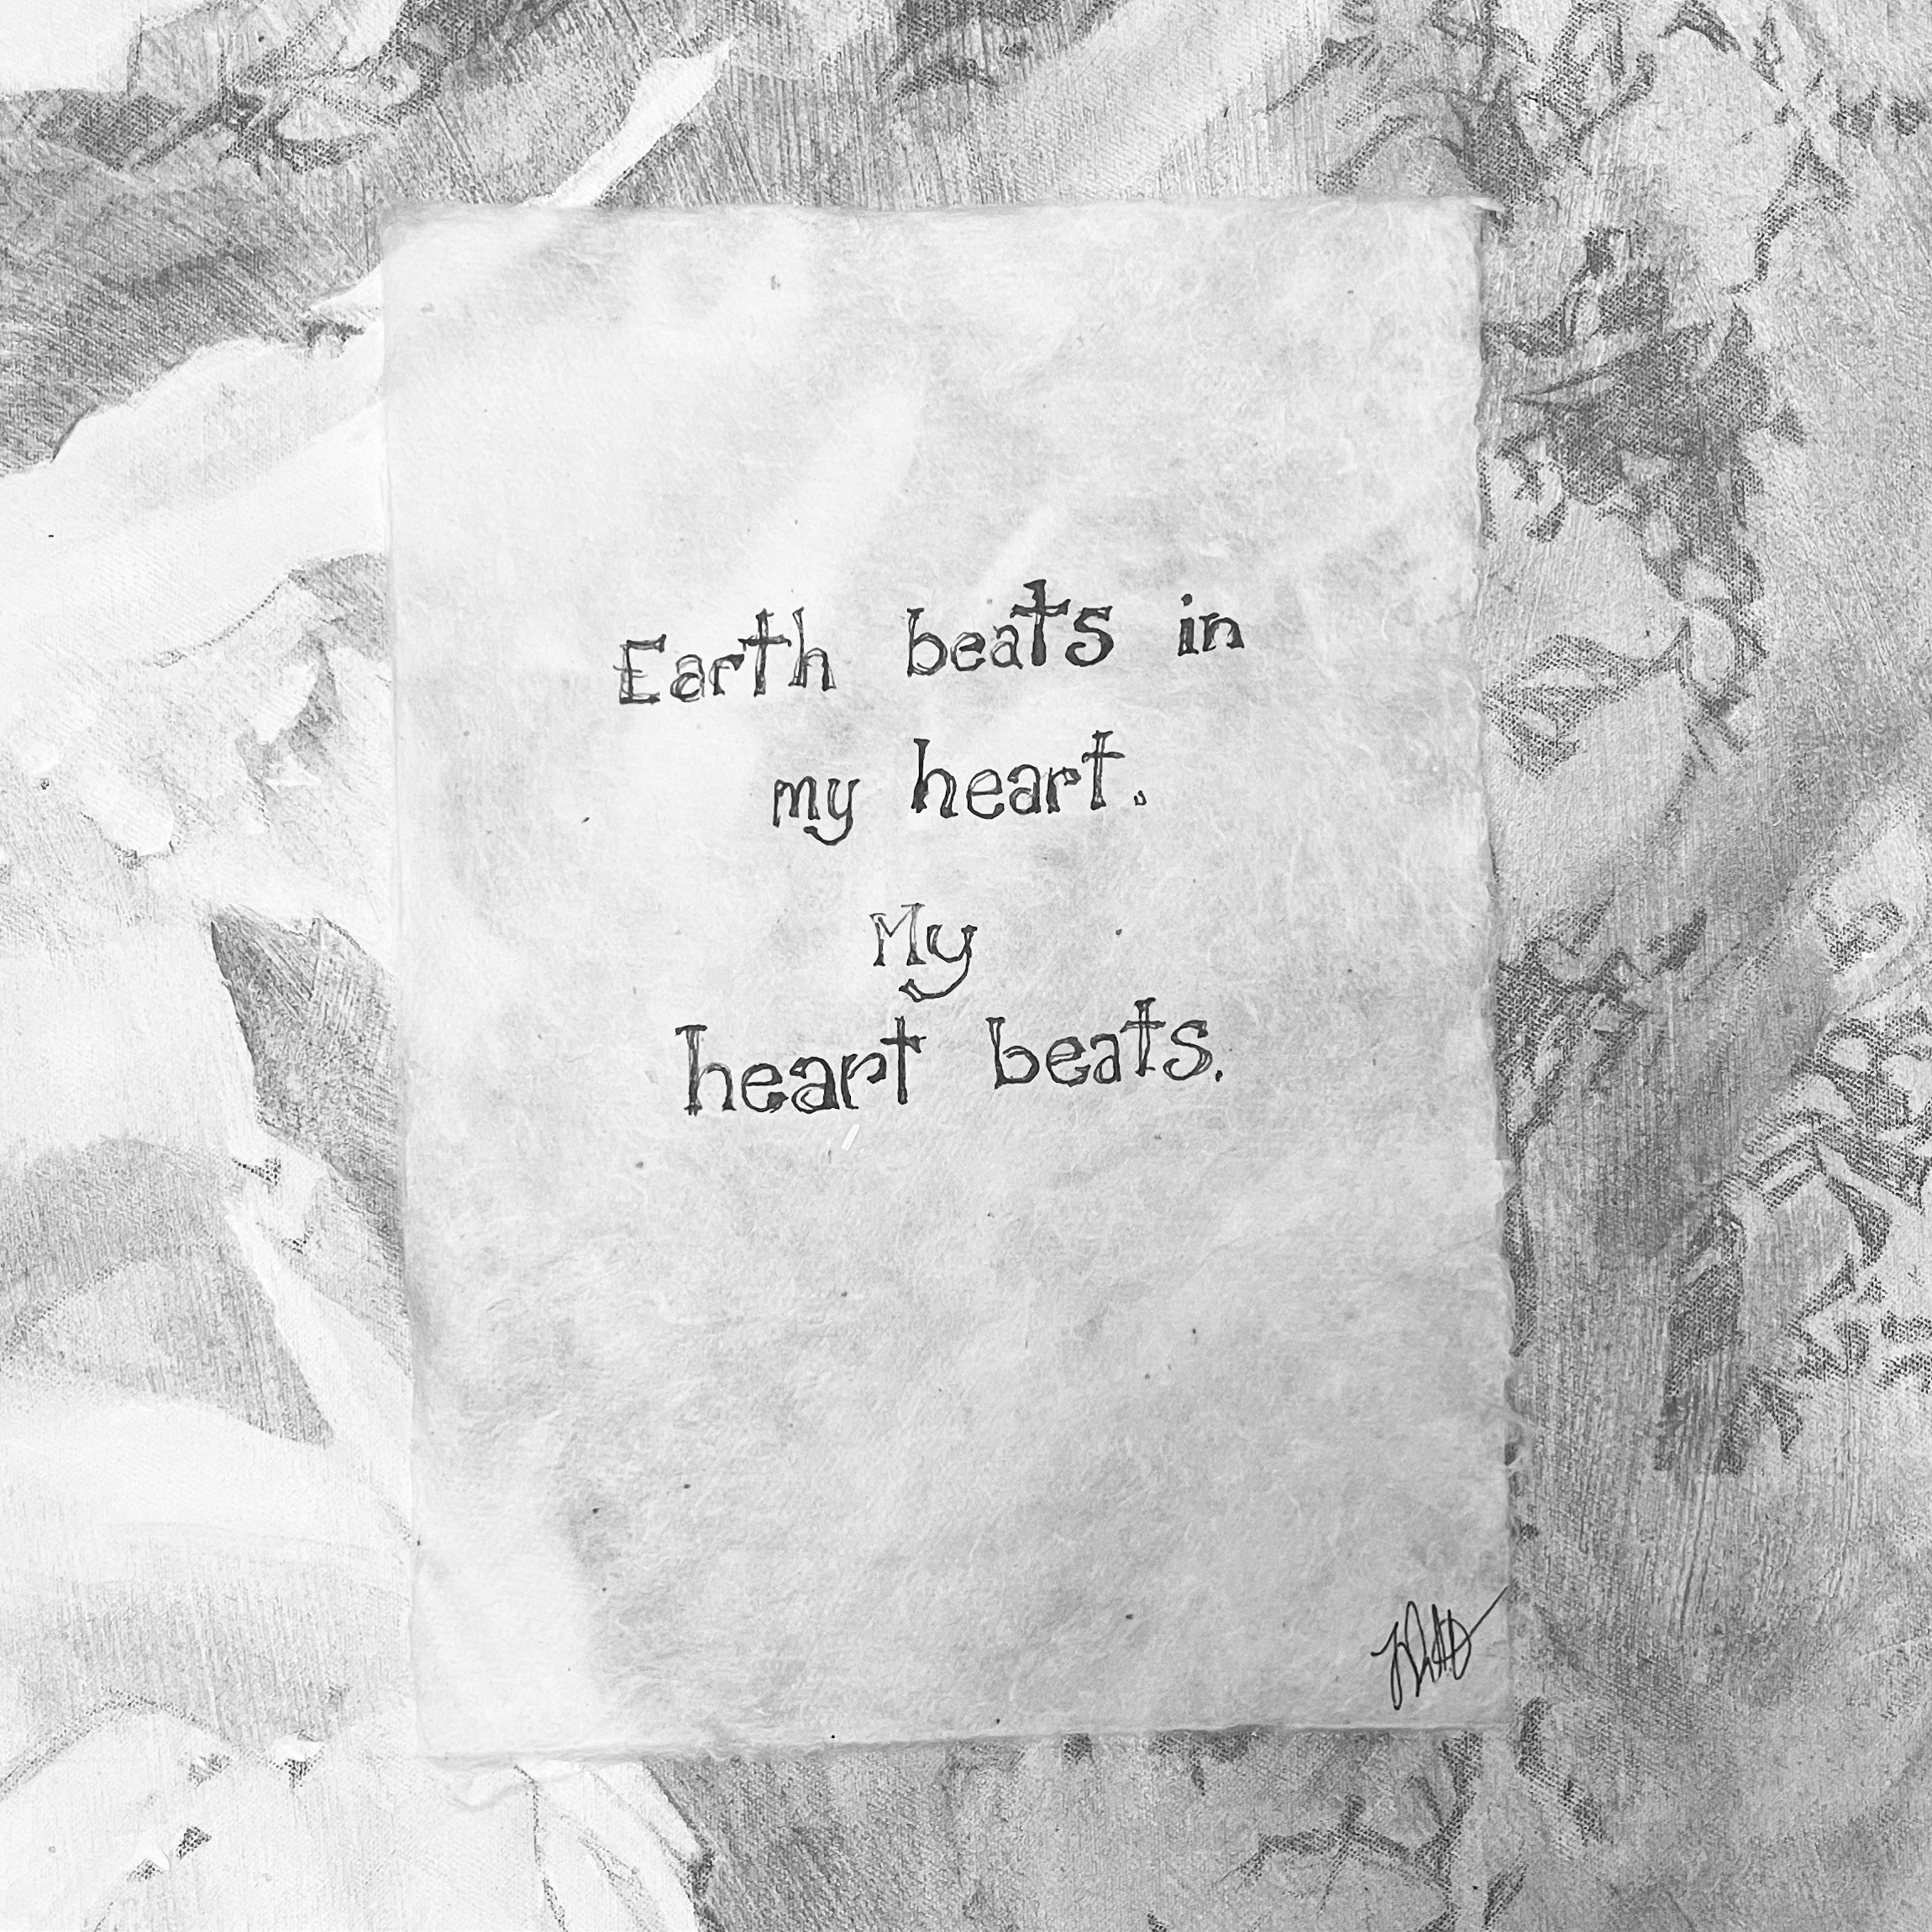 Earth beats in
my heart.
My
heart beats.